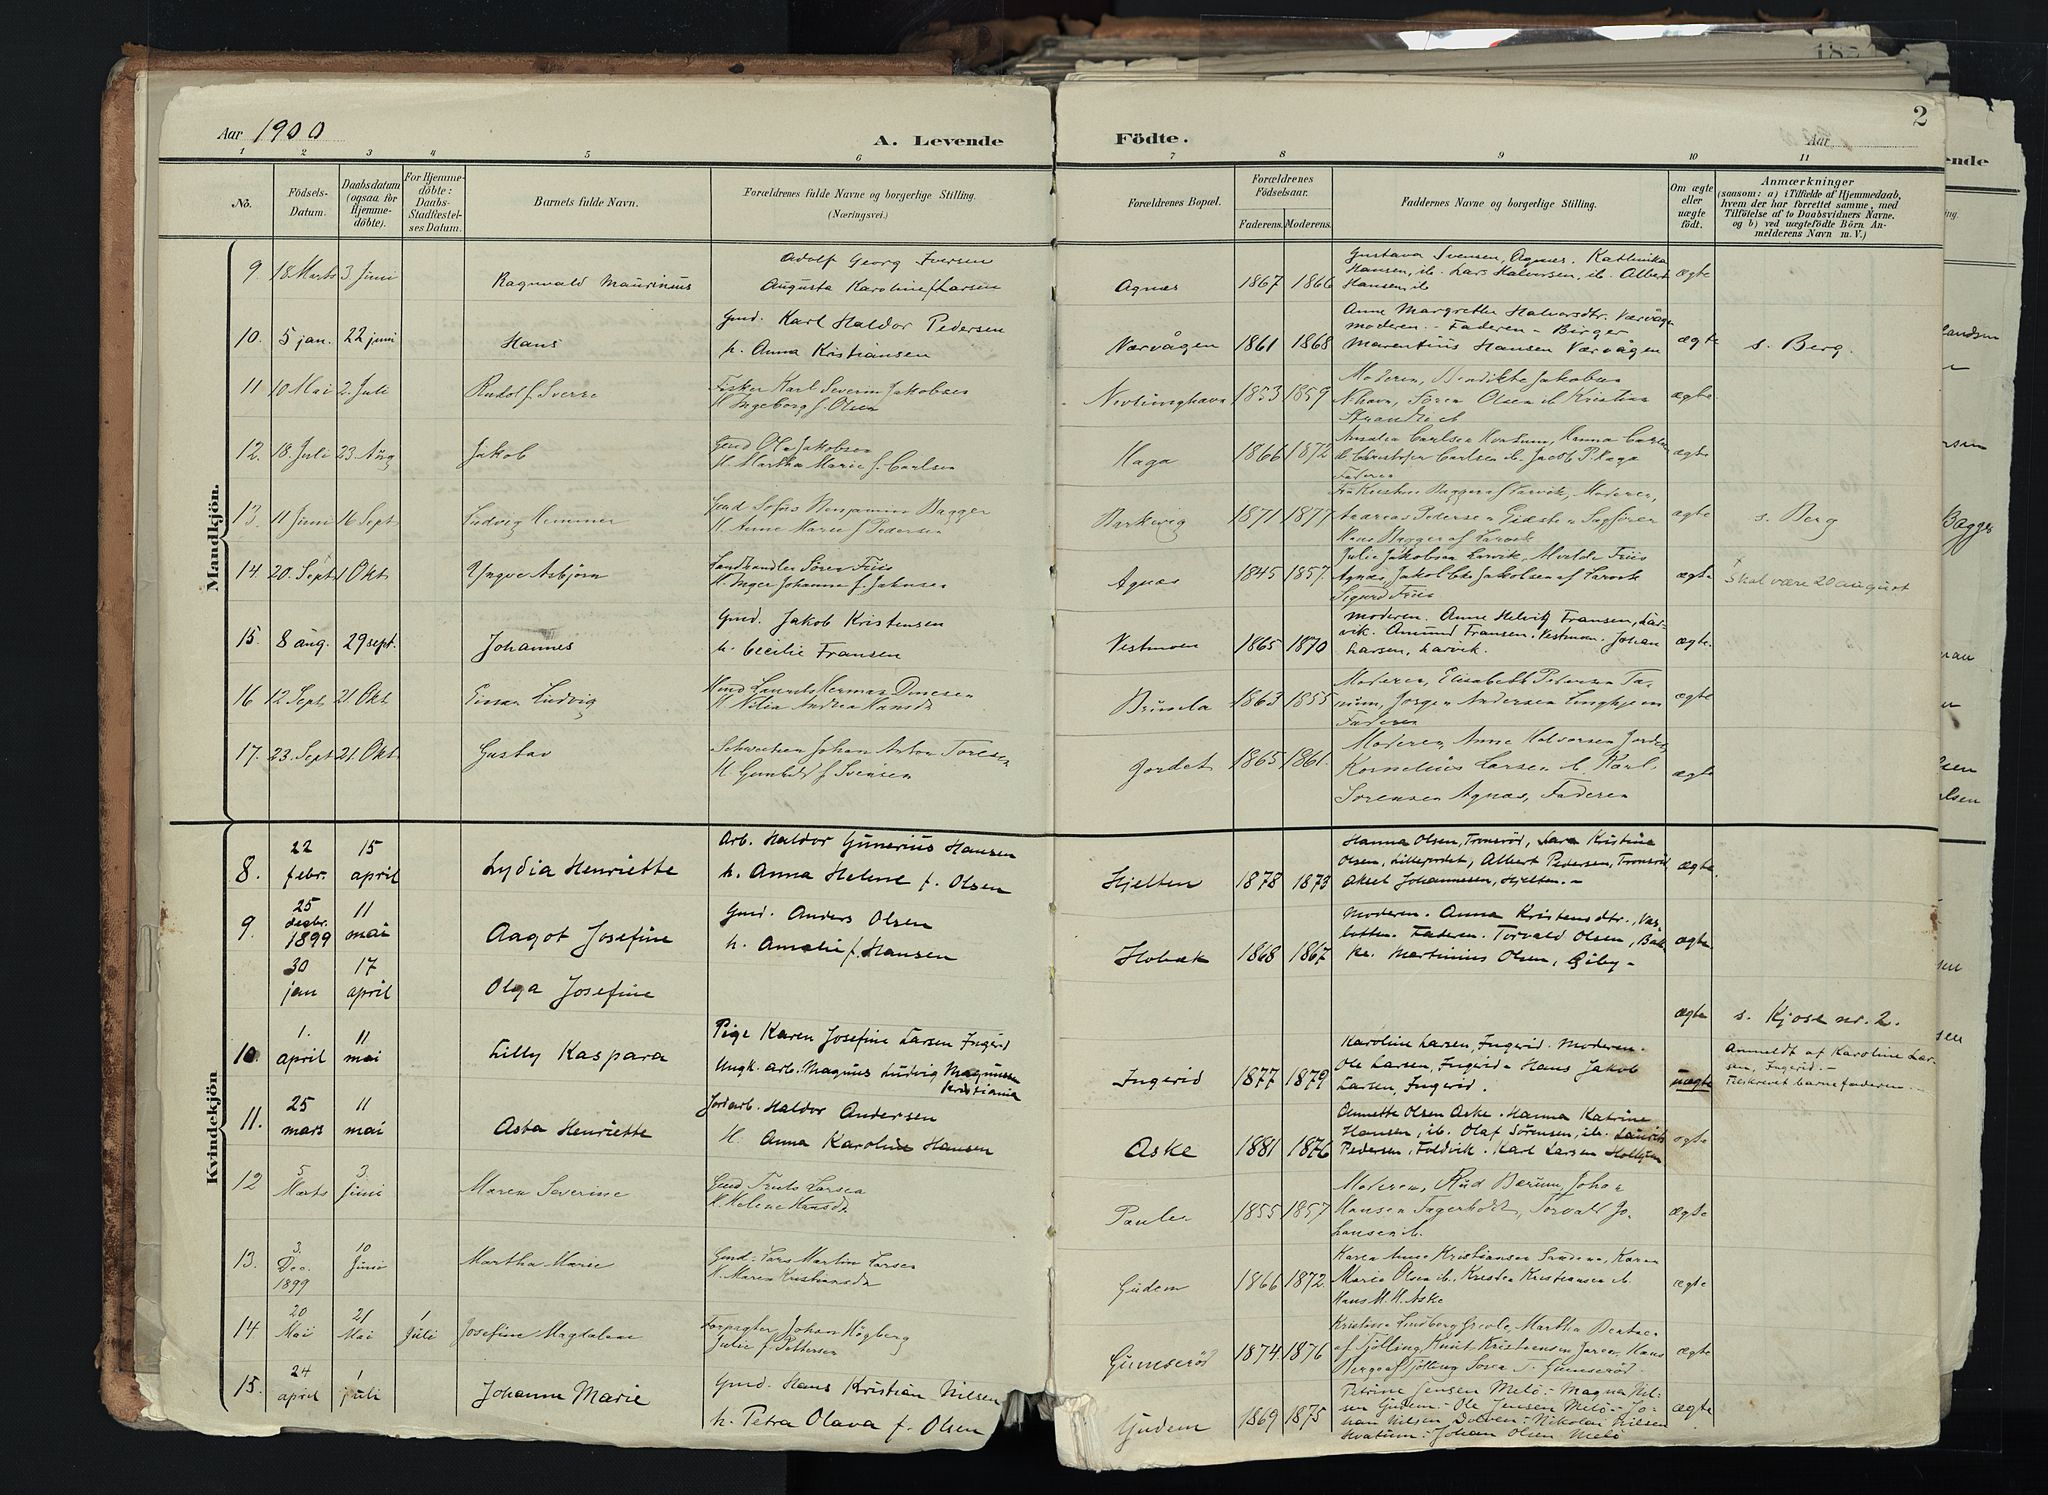 Aar 1900
A. Levende
Födte.
Aar
2
1 2 3 4 5 6 7 8 9 10 11
No.
Födsels-
Datum.
Daabsdatum
(ogsaa for
Hjemme-
döbte).
For Hjemme-
döbte:
Daabs-
Stadfæstel-
ses Datum.
Barnets fulde Navn.
Forældrenes fulde Navne og borgerlige Stilling.
(Næringsvei.)
Forældrenes Bopæl.
Forældrenes
Födselsaar.
Faderens. Moderens.
Faddernes Navne og borgerlige Stilling.
Om ægte
eller
uægte
födt.
Anmærkninger
(saasom: a) i Tilfælde af Hjemmedaab,
hvem der har forrettet samme, med
Tilföielse af to Daabsvidners Navne.
og b) ved uægtefödte Börn An-
melderens Navn m. V.)
Mandkjön.
9 18 Marts 3 Juni Ragnvald Maurinius
Adolf Georg Iversen
Augusta Karoline f Larsen
Agnæs 1867 1866
Gustava Svensen, Agnæs. Kathinka
Hansen, ib. Lars Halvorsen, ib. Albert
Hansen, ib
ægte
10. 5 jan. 22 juni Hans
Gmd. Karl Haldor Pedersen
h. Anna Kristiansen
Nærvågen 1861 1868
Anne Margrethe Halvorsdtr. Værvågen
moderen. - Faderen - Birger
Marentius Hansen Værvågen
ægte s. Berg.
11 10 Mai 2. Juli Rudolf Sverre
Fisker Karl Severin Jakobsen
H. Ingeborg f. Olsen
Nevlunghavn 1853 1859
Moderen, Bendikte Jakobsen
N.havn, Sören Olsen ib Kristian
Strand ib
ægte
12. 18. Juli 23 Aug Jakob
Gmd Ole Jakobsen
H. Martha Marie f. Carlsen
Haga 1866 1872
Carlsen Kvatum, Hanna Carlsen
ib Christofer Carlsen ib. Jacob P. Haga
Faderen
ægte
13. 11 Juni 16 Sept Ludvig Hemmer
Gmd Sofus Benjamin Bagger
H. Anne Marie f Pedersen
Barkevig 1871 1877
Fru Kristine Bagger af Larvik, Moderen,
Andreas Pedersen Sagförer
Hans Bagger af Larvik
ægte s. Berg
14. 20. Sept 1 Okt Yngve Asbjörn
Landhandler Sören Friis
H. Inger Johanne f. Jahnsen
Agnæs 1845 1857.
Julie Jakobsen Larvik, Friis
Agnæs, Jakob Jakobsen af Larvik
Sigurd Friis
ægte Skal være 20 august
15 8 aug. 29 sept. Johannes
Gmd. Jakob Kristensen
h. Cecilie Fransen
Vestmoen 1865 1870
moderen. Anne Helvig Fransen, Lar-
vik. Amund Fransen. Vestmoen. Johan
Larsen, Larvik.
ægte.
16 12 Sept 21. Okt Einar Ludvig
Gmd Laurits Herman Dinesen
H Nilia Andrea Hansdr
Brunla 1863 1855
Moderen, Elisabeth Pedersen Ta-
num, Jörgen Andersen
Faderen
ægte
17. 23. Sept 21. Okt Gustav
Johan Anton Toresen
H. Gunhild f Svensen
Jordet 1865 1861.
Moderen, Anne Halvorsen Jordet,
Kornelius Larsen ib. Karl
Sörensen Agnæs, Faderen
ægte
Kvindekjön
8. 22 febr. 15 april Lydia Henriette
Arb. Haldor Gunerius Hansen
h. Anna Helene f. Olsen
Hjelten 1878 1873
Hanna Olsen, Tronsröd, Lara Kristine
Olsen, Lillejordet, Albert Pedersen, Tronsröd
Aksel Johannesen, Hjelten. -
ægte.
9. 25 decbr. 1899 11 mai Aagot Josefine
Gmd. Anders Olsen
h. Amalie f. Hansen
Hobæk 1868 1867
Moderen. Anna Kristensdtr., Vas-
botten. Faderen. Torvald Olsen, Bak-
ke. Martinius Olsen, Göby -
ægte
30 jan 17 april Olga Josefine
ægte s. Kjose nr. 2.
10. 1. april 11 mai Lilly Kaspara
Pige Karen Josefine Larsen Ingerid
Ungk. arb. Magnus Ludvig Magnussen
Kristiania
Ingerid 1877 1879
Karoline Larsen, Ingerid. Moderen.
Ole Larsen, Ingerid - Hans Jakob
Larsen, Ingerid.
uægte
Anmeldt af Karoline Lar-
sen, Ingerid. -
Tilskrevet barnefaderen. -
11. 25 mars 11 mai Asta Henriette
Jordarb. Haldor Andersen
H. Anna Karoline Hansen
Aske 1881 1876
Annette Olsen Aske. Hanna Katrine
Hansen, ib. Olaf Sörensen, ib. Laurits
Pedersen, Foldvik. Karl Larsen Holtkjen
ægte
12 5 Marts 3. Juni Maren Severine
Gmd Truls Larsen
H. Helene Hansdr
Paule 1855 1857
Moderen, Rud Bærum, Johan
Hansen Fagerholt, Torvald Jo-
hansen ib.
ægte
13. 3. Dec. 1899 10 Juni Martha Marie
Gmd. Lars Martin Larsen
H. Maren Kristiansdr
Gudem 1866 1872.
Karen Anne Kristiansen Sandene, Karen
Marie Olsen ib, Kristen Kristiansen ib
Hans M. H. Aske
ægte
14. 20 Mai 21 Mai 1 Juli Josefine Magdalene
Forpagter Johan Högberg
Julie f. Pettersen
Gumseröd 1874. 1876
Kristine Lindberg Martha
af Tjölling Knut Kristensen Jaren, Hans
Berge af Tjölling Gumseröd
ægte
15. 24 april 1 juli Johanne Marie
Gmd. Hans Kristian Nilsen
h. Petra Olava f. Olsen
Gudem 1869 1875
Petrine Jensen Melö - Magna Nil-
sen Gudem - Ole Jensen Melö - Jo-
han Nilsen, Dolven - Nikolai Nilsen
Kvatum - Johan Olsen Melö
ægte